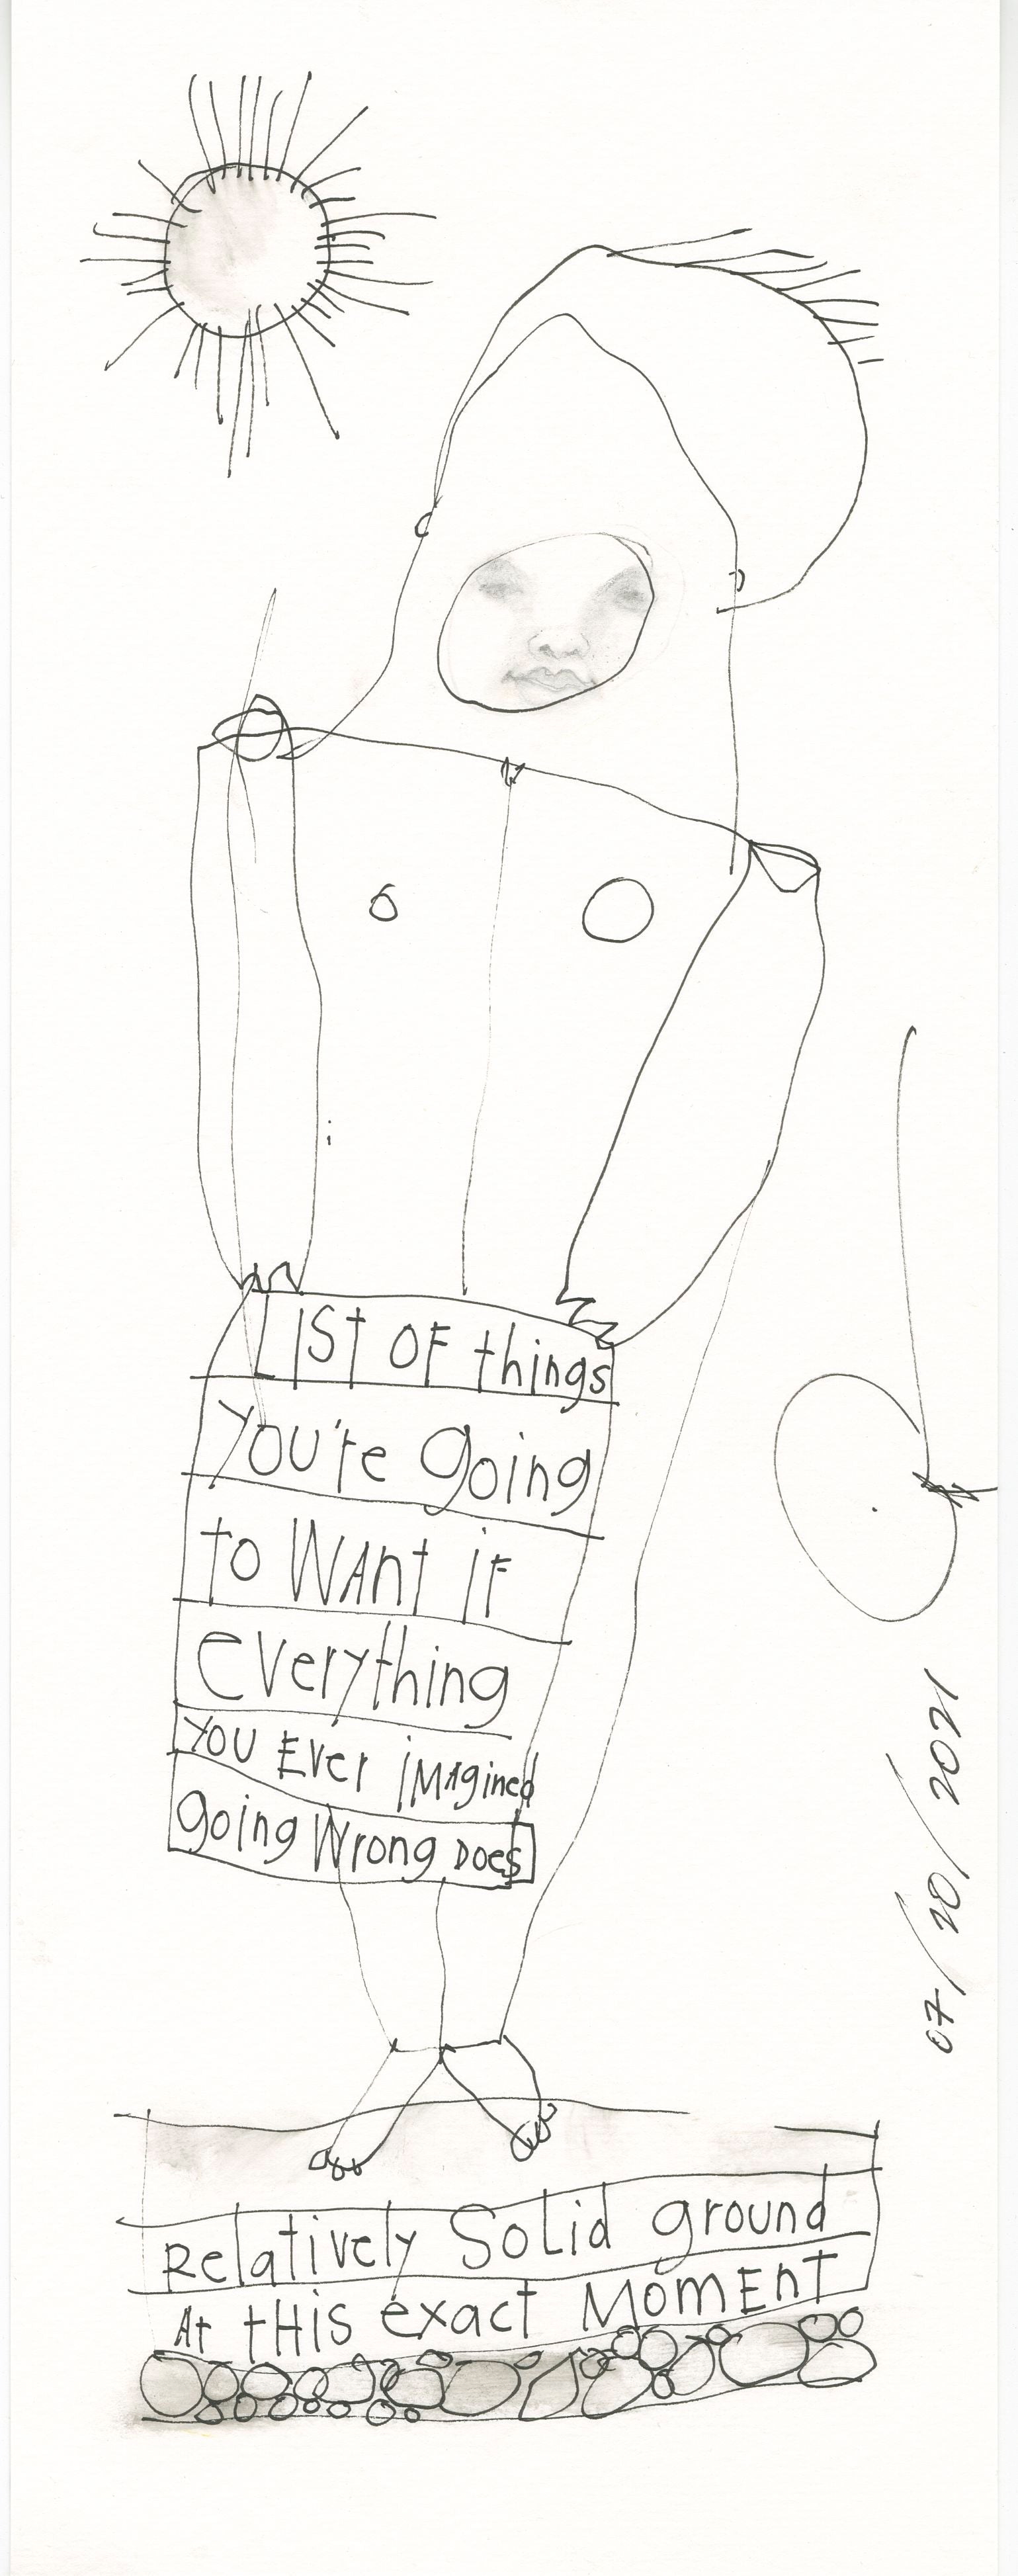 LIST OF things
YOU're going
to WAnt iF
everything
YOU EVer iMAgined
going Wrong DOES
Relatively SoLid ground
At tHis exact MOmEnT
07/10/2021